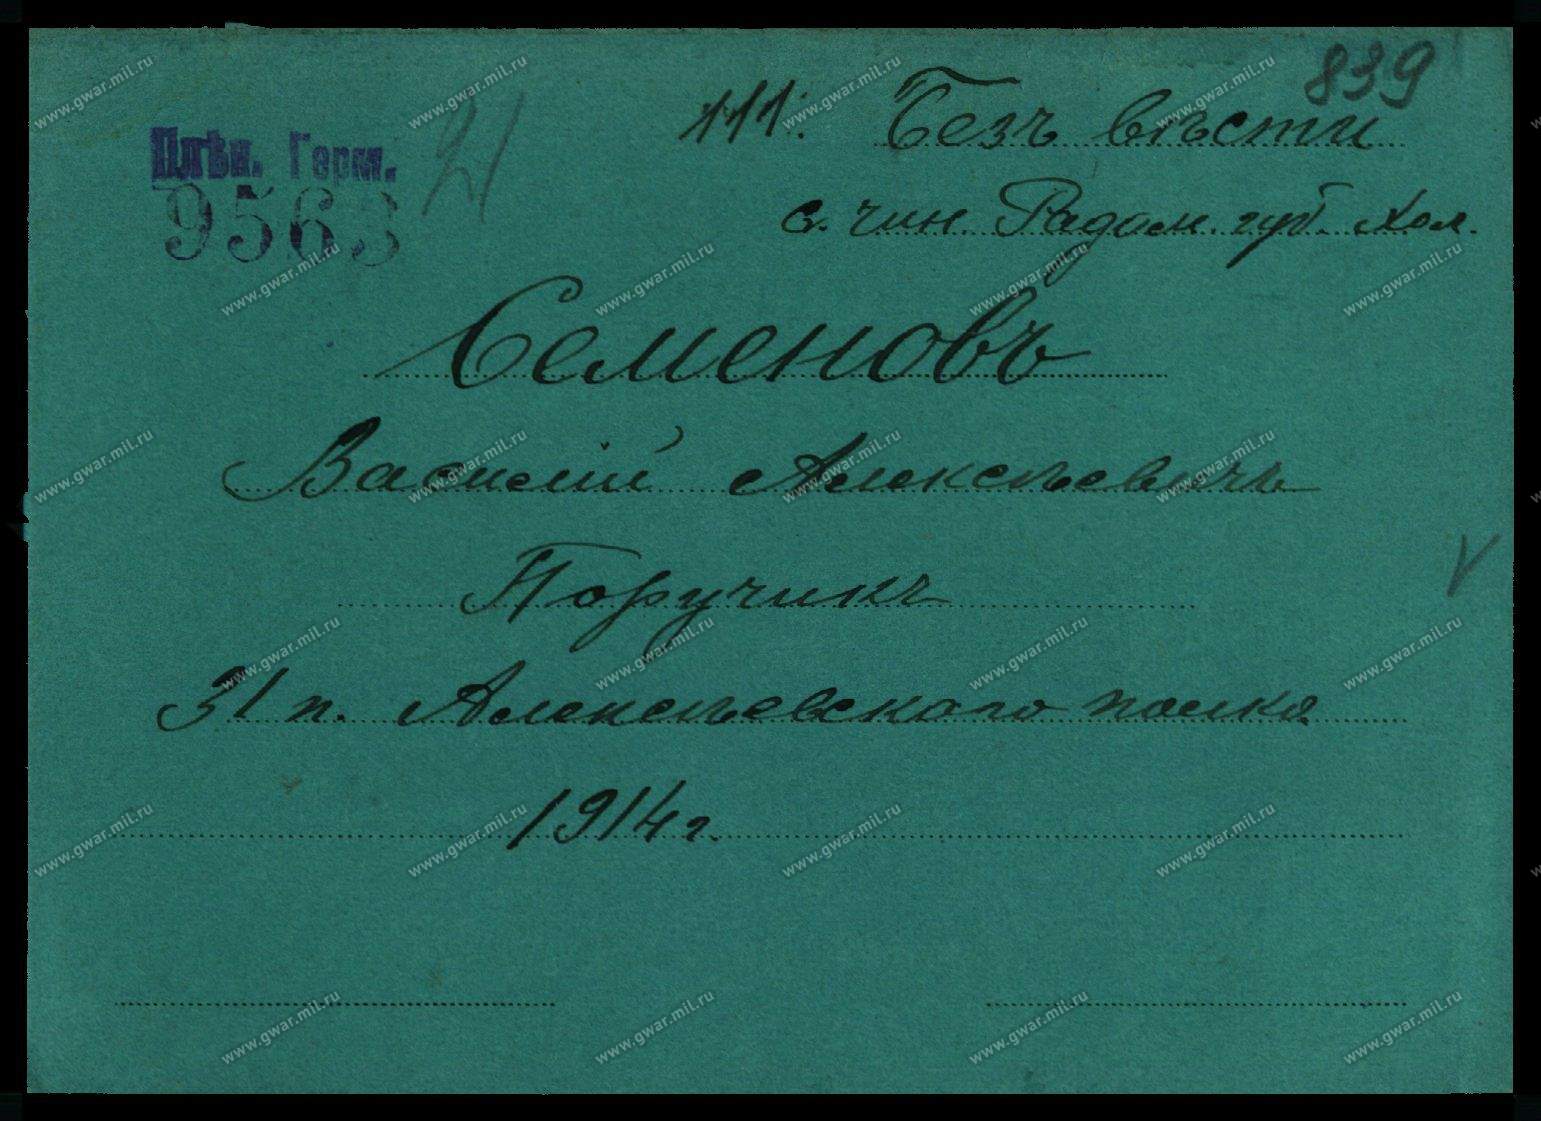 839
111. Безъ вѣсти
Плѣн. Герм. 21
9563
с. чин. Радом. губ. Хол.
Семеновъ
Василій Алексѣевичъ
Поручикъ
31 п. Алексѣевскаго полка
1914 г.
www.gwar.mil.ru